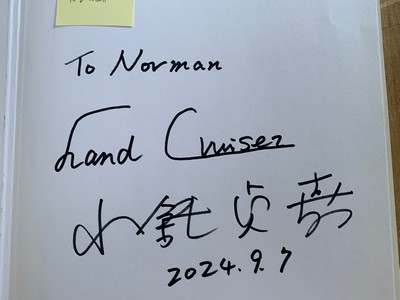 To Norman
Land Cruiser
小鑓貞嘉
2024.9.7